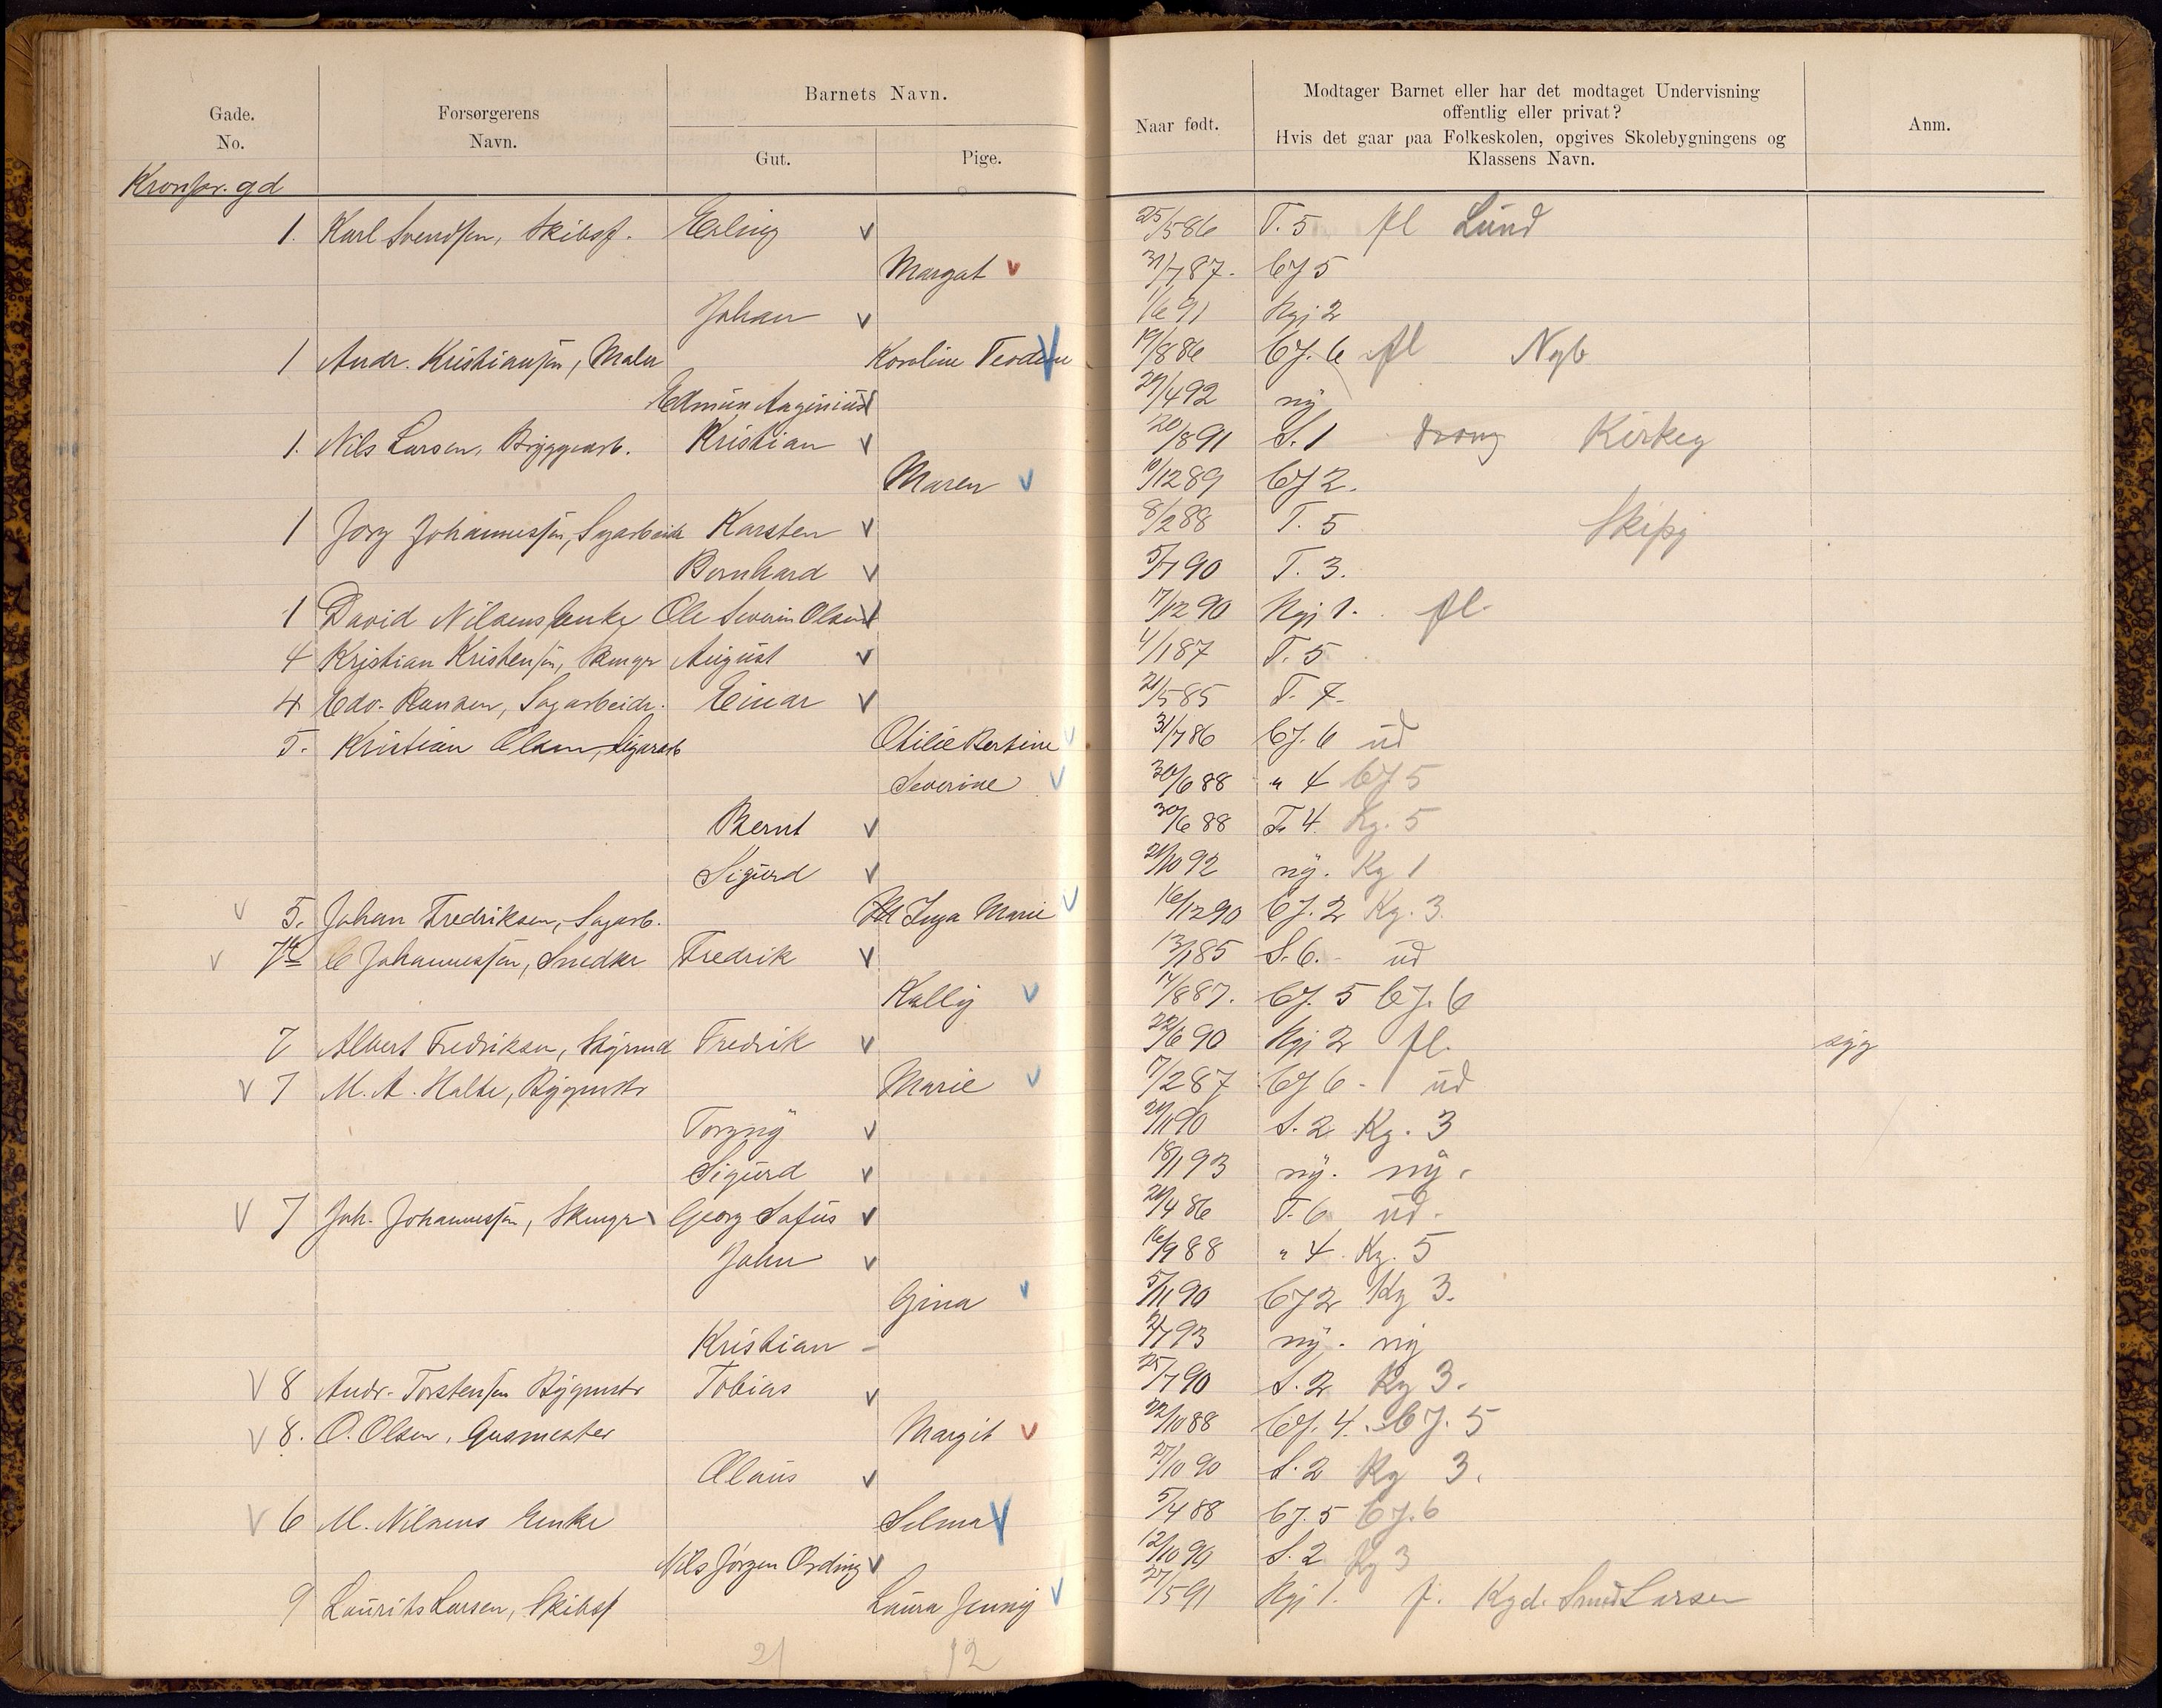 Gade. No.
Forsørgerens Navn.
Barnets Navn.
Gut.
Pige.
Naar født.
Modtager Barnet eller har det modtaget Undervisning
offentlig eller privat?
Hvis det gaar paa Folkeskolen, opgives Skolebygningens og
Klassens Navn.
Anm.
Kronpr. gd
1. Karl Svendsen, Skibsf. Erling v 25/5 86 T. 5 fl Lund
Margit v 31/7 87. CJ 5
Johan v 1/6 91 Ngj 2
1 Andr. Kristiansen, Maler Karoline 19/8 86 CJ. 6 fl Nyb
Edmun 29/4 92 ny
1. Nils Larsen, Bryggearb. Kristian v 20/8 91 S. 1 Kirkeg
Maren v 10/12 89 CJ 2.
1 Jørg Johannessen, Sagarbeider Karsten v 8/2 88 T. 5
Bernhard v 5/7 90 T. 3.
1 David Nilsens Enke Ole Severin Olsen v 17/12 90 Ngj 1. fl.
4 Kristian Kristensen, August v 4/1 87 T. 5
4 Edv. Hansen, Sagarbeidr. Einar v 21/5 85 T. 7.
5. Kristian Olsen, Otilie Bertine v 31/7 86 CJ. 6 ud
Severine v 30/6 88 " 4 CJ 5
Bernt v 30/6 88 T. 4. Kg. 5
Sigurd v 21/10 92 ny. Kg 1
v 5. Johan Fredriksen, Sagarb. Inga Marie v 16/12 90 CJ. 2 Kg. 3.
v 7 C Johannessen, Snedker Fredrik v 13/1 85 S. 6. ud
Kally v 14/8 87. CJ. 5 CJ. 6
7 Albert Fredriksen, Styrmd Fredrik v 22/6 90 Ngj 2 fl. syg
v 7 M. A. Halte, Bygmstr Marie v 7/2 87 CJ 6 - ud
Torgny v 21/1 90 S. 2 Kg. 3
Sigurd v 18/1 93 ny. ny.
v 7 Joh. Johannessen, Georg Sofus v 24/4 86 T. 6 ud.
John v 16/9 88 " 4. Kg. 5
Gina v 5/11 90 CJ 2 Kg 3.
Kristian - 2/7 93 ny. ny
v 8 Andr. Torstensen Bygmstr Tobias v 25/7 90 S. 2 Kg 3.
v 8. O. Olsen, Gasmester Margit v 22/10 88 CJ. 4. CJ. 5
Olaus v 27/10 90 S. 2 Kg 3.
v 6 M. Nilsens Enke Selma v 5/4 88 CJ. 5 CJ. 6
Nils Jørgen Ording v 12/10 90 S. 2 Kg 3
9 Laurits Larsen, Skibsf Laura Jenny v 27/5 91 Ngj 1. f. Kgd. Smed Larsen
21 12